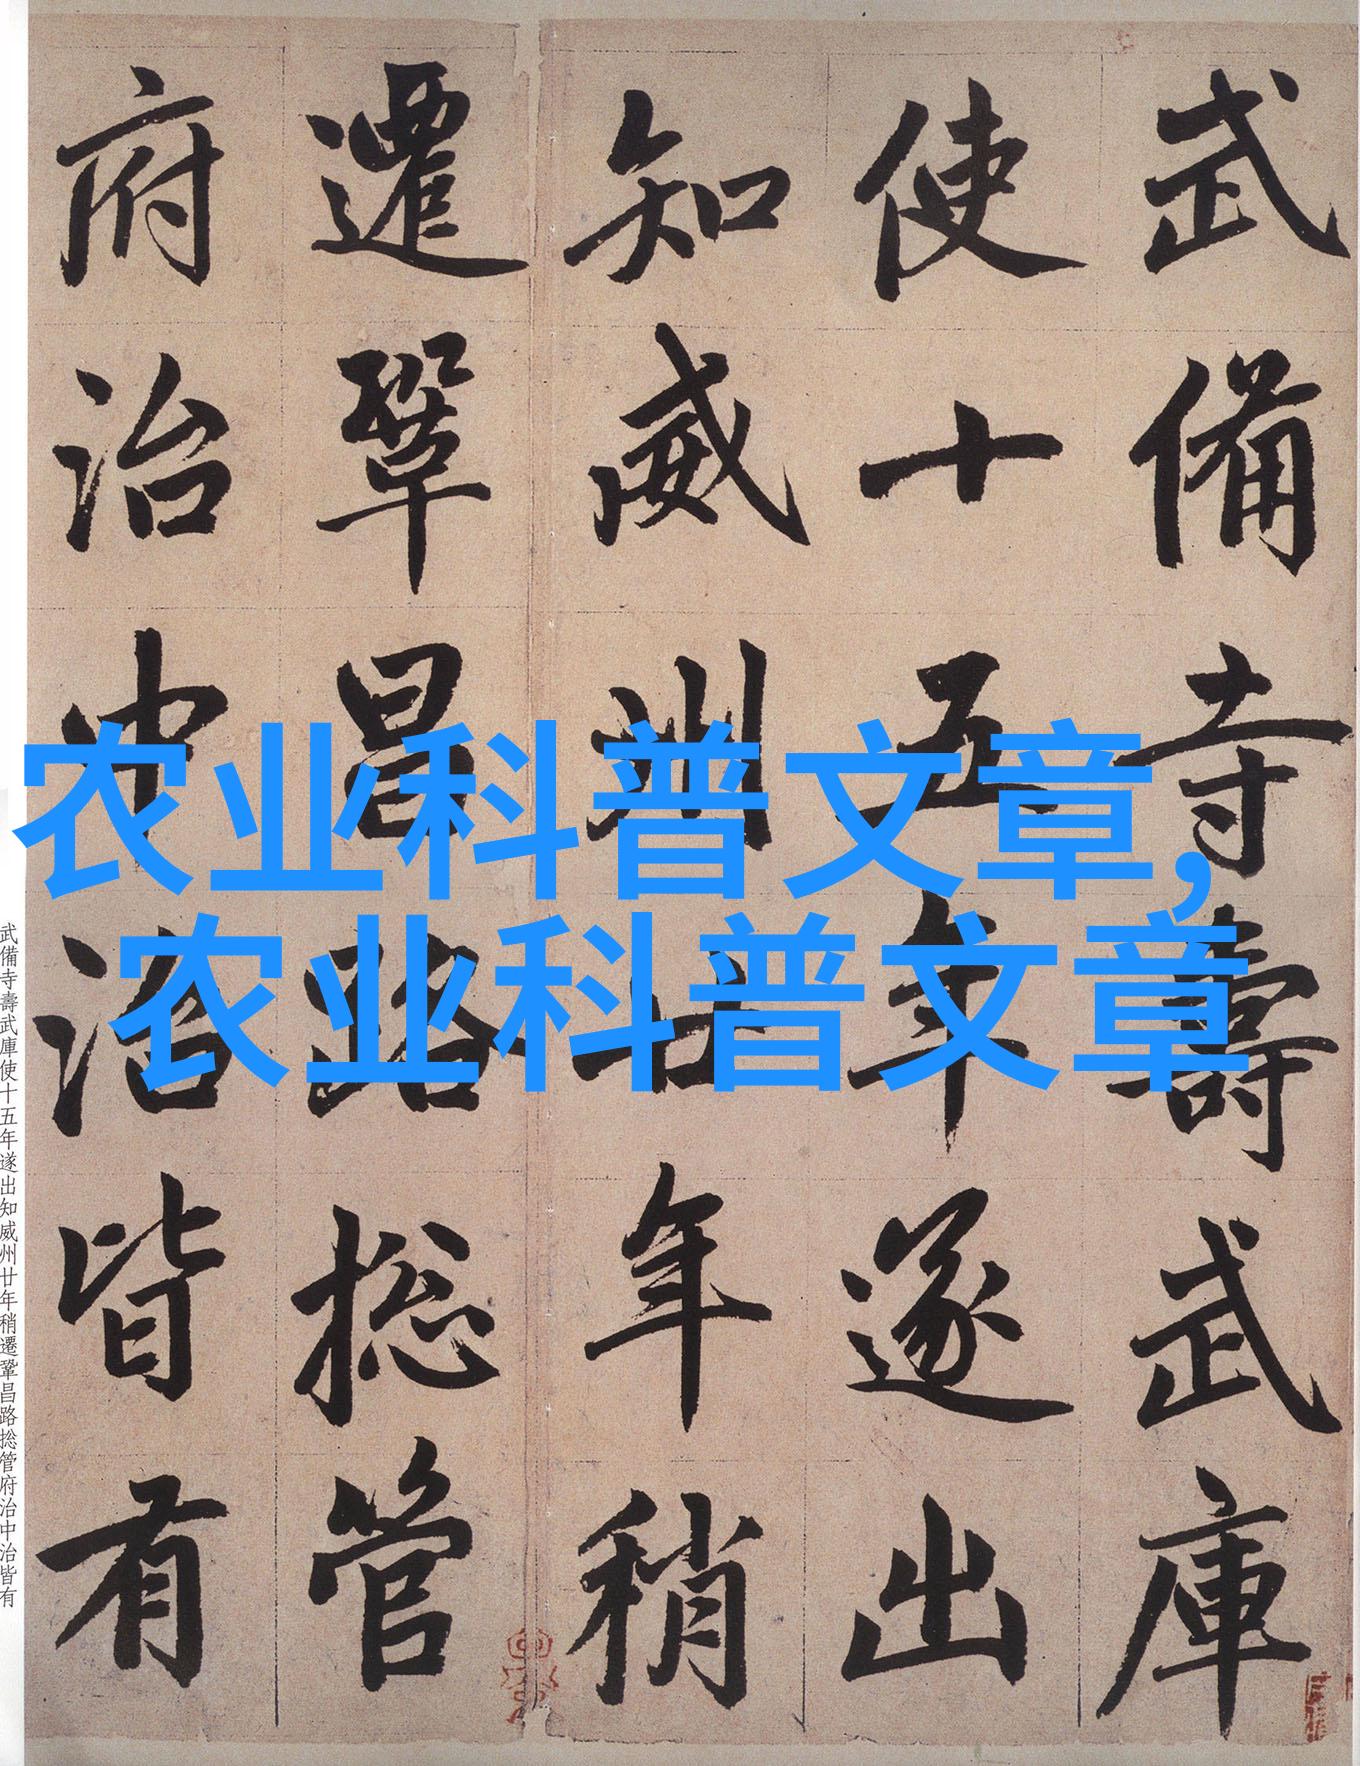 武備寺壽武庫
使十五年遂出
知威州廿年稍
遷鞏昌路捴管
府治中治皆有
农业科普文章,
农业科普文章
武備寺壽武庫使十五年遂出知威州廿年稍遷鞏昌路捴管府治中治皆有